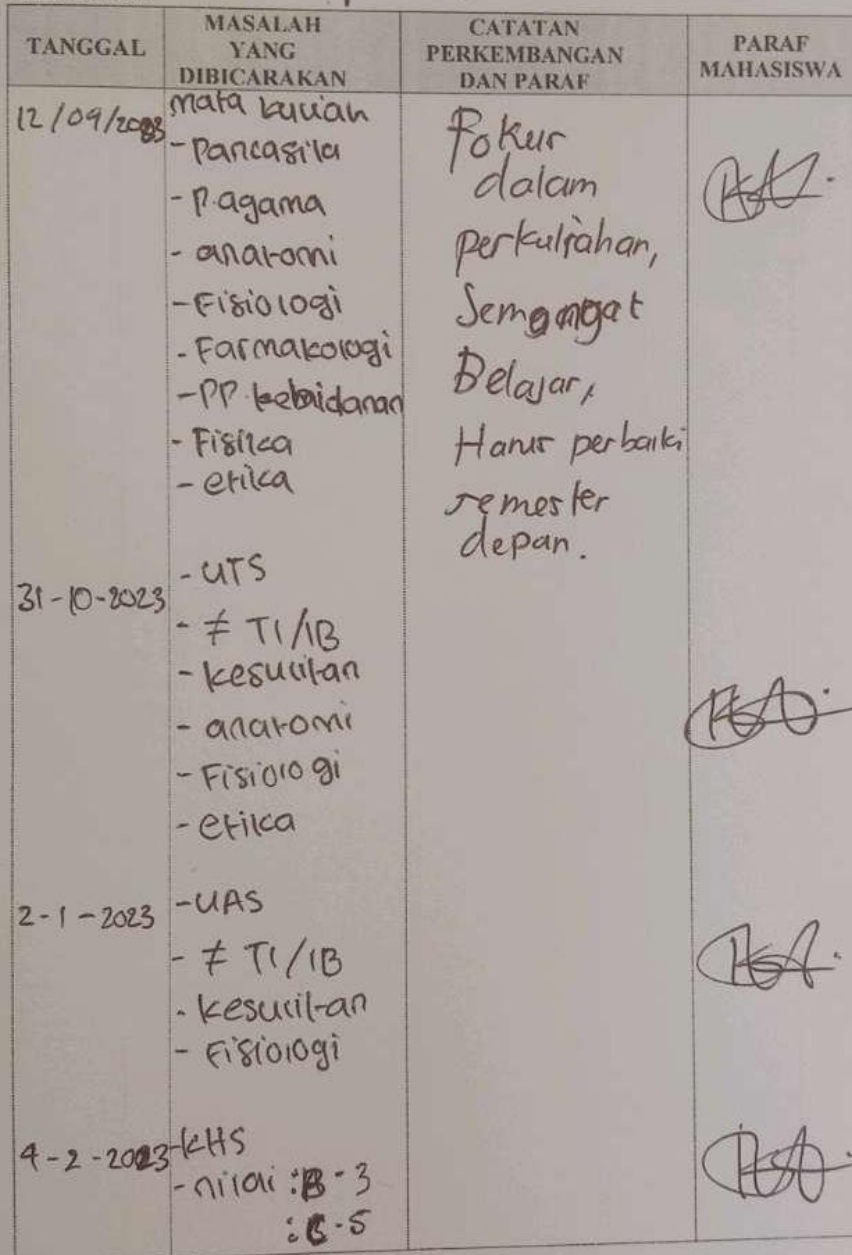 TANGGAL
MASALAH
YANG
DIBICARAKAN
CATATAN
PERKEMBANGAN
DAN PARAF
PARAF
MAHASISWA
12/09/2023
mata kuliah
- Pancasila
- P. agama
- anatomi
- Fisiologi
- Farmakologi
- PP kebidanan
- Fisika
- etika
Fokus
dalam
perkuliahan,
Semangat
Belajar,
Harus perbaiki
semester
depan.
31-10-2023
- UTS
- ≠ TI/IB
- kesulitan
- anatomi
- Fisiologi
- etika
2-1-2023
- UAS
- ≠ TI/IB
- kesulitan
- Fisiologi
4-2-2023
- KHS
- nilai : B - 3
: - 5